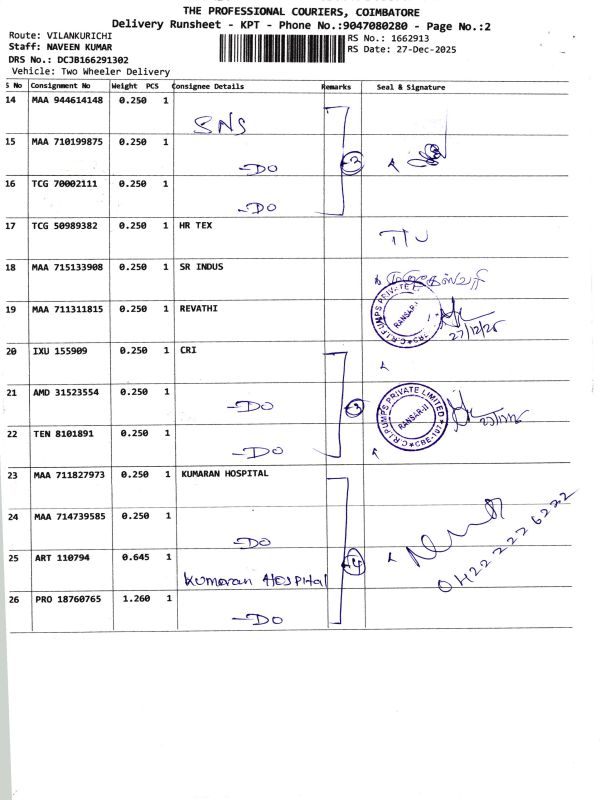 THE PROFESSIONAL COURIERS, COIMBATORE
Delivery Runsheet - KPT - Phone No.:9047080280 - Page No.:2
Route: VILANKURICHI
RS No.: 1662913
Staff: NAVEEN KUMAR
RS Date: 27-Dec-2025
DRS No.: DCJB166291302
Vehicle: Two Wheeler Delivery
S No Consignment No Weight PCS Consignee Details Remarks Seal & Signature
14 MAA 944614148 0.250 1
SNS
15 MAA 710199875 0.250 1
-DO
16 TCG 70002111 0.250 1
-DO
17 TCG 50989382 0.250 1 HR TEX
18 MAA 715133908 0.250 1 SR INDUS
19 MAA 711311815 0.250 1 REVATHI
C.R.I PUMPS PRIVATE
RANSAR-I
27/12/25
20 IXU 155909 0.250 1 CRI
21 AMD 31523554 0.250 1
-DO
-3
C.R.I PUMPS PRIVATE LIMITED
RANSAR-II
CBE-107
22 TEN 8101891 0.250 1
-DO
23 MAA 711827973 0.250 1 KUMARAN HOSPITAL
24 MAA 714739585 0.250 1
-DO
25 ART 110794 0.645 1
Kumaran Hospital
-4
0422 2226222
26 PRO 18760765 1.260 1
-DO